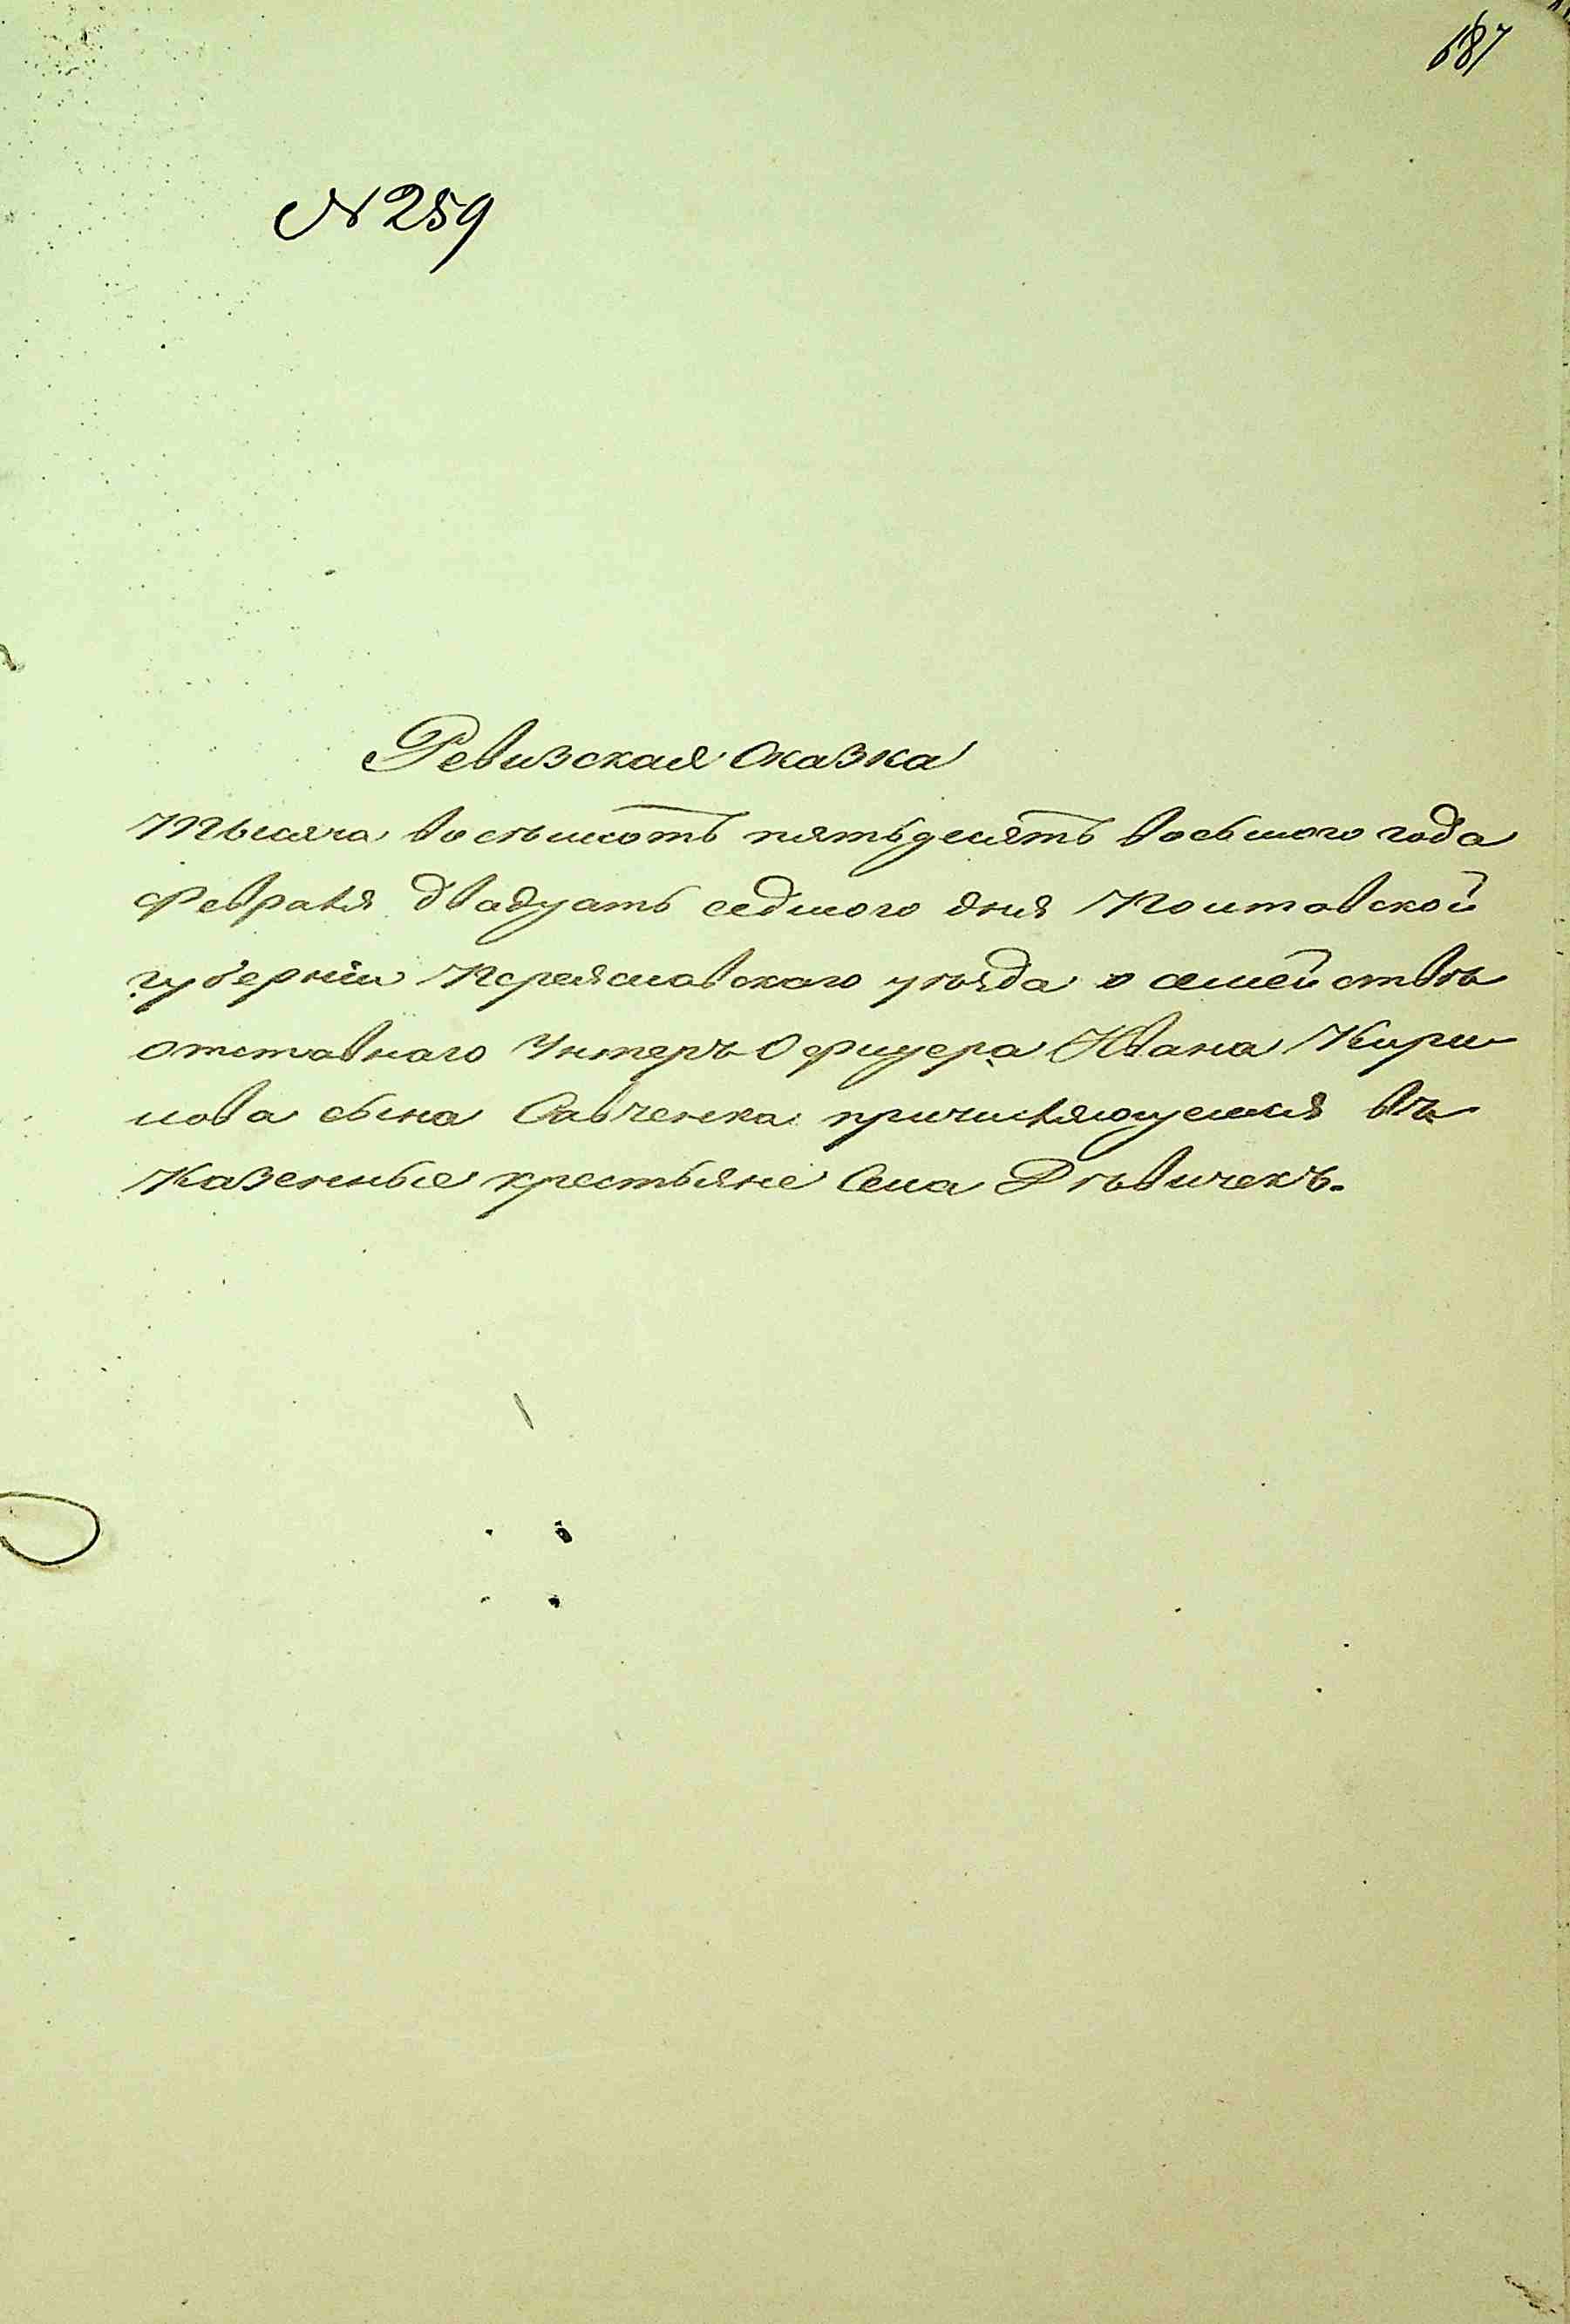 687
№ 259
Ревизская сказка
Тысяча восемьсотъ пятьдесятъ восьмого года
Февраля двадцать седмого дня Полтавской
губерніи Переяславскаго уѣзда о семействѣ
отставнаго Унтеръ-Офицера Ивана Кири-
лова сына Савченка причисляющемся въ
Казенные крестьяне Села Дѣвичекъ.